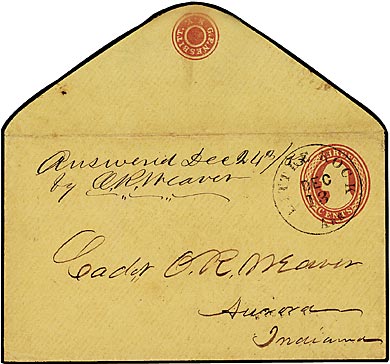 G.F. NESBITT
Answered Dec 24th/53
by O.R. Weaver
LITTLE ROCK
DEC
3
Ark.
CENTS
Cadet O. R. Weaver
Aurora
Indiana